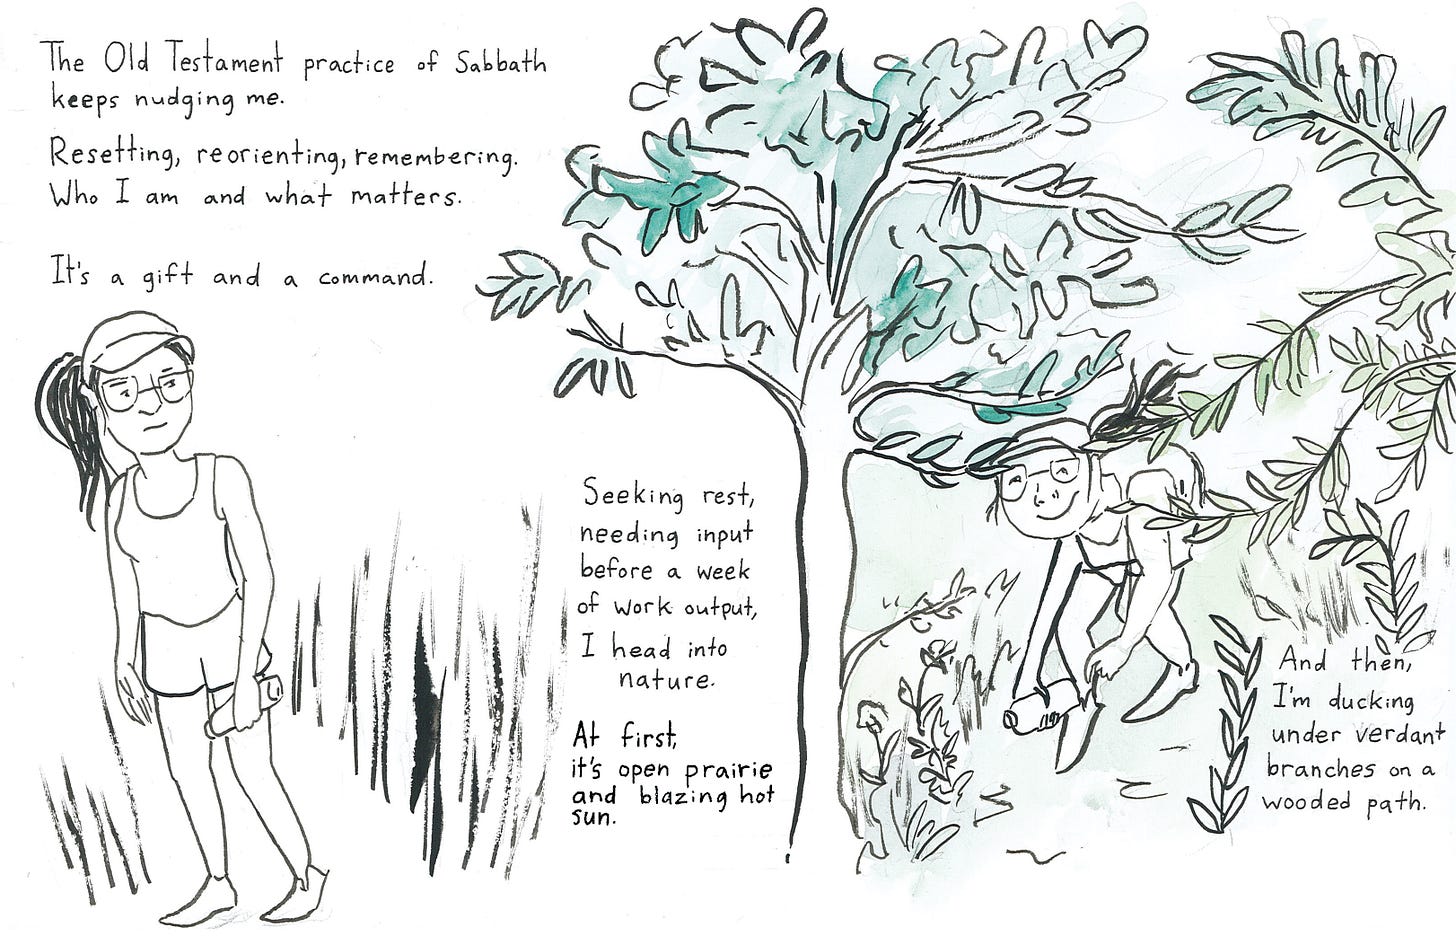 The Old Testament practice of Sabbath
keeps nudging me.
Resetting, reorienting, remembering.
Who I am and what matters.
It's a gift and a command.
Seeking rest,
needing input
before a week
of work output,
I head into
nature.
At first,
it's open prairie
and blazing hot
sun.
And then,
I'm ducking
under verdant
branches on a
wooded path.